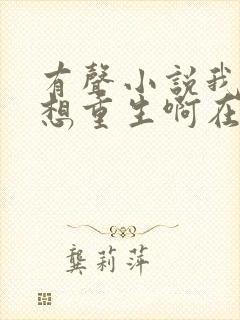 有聲小説我
想重生啊在
龔莉萍